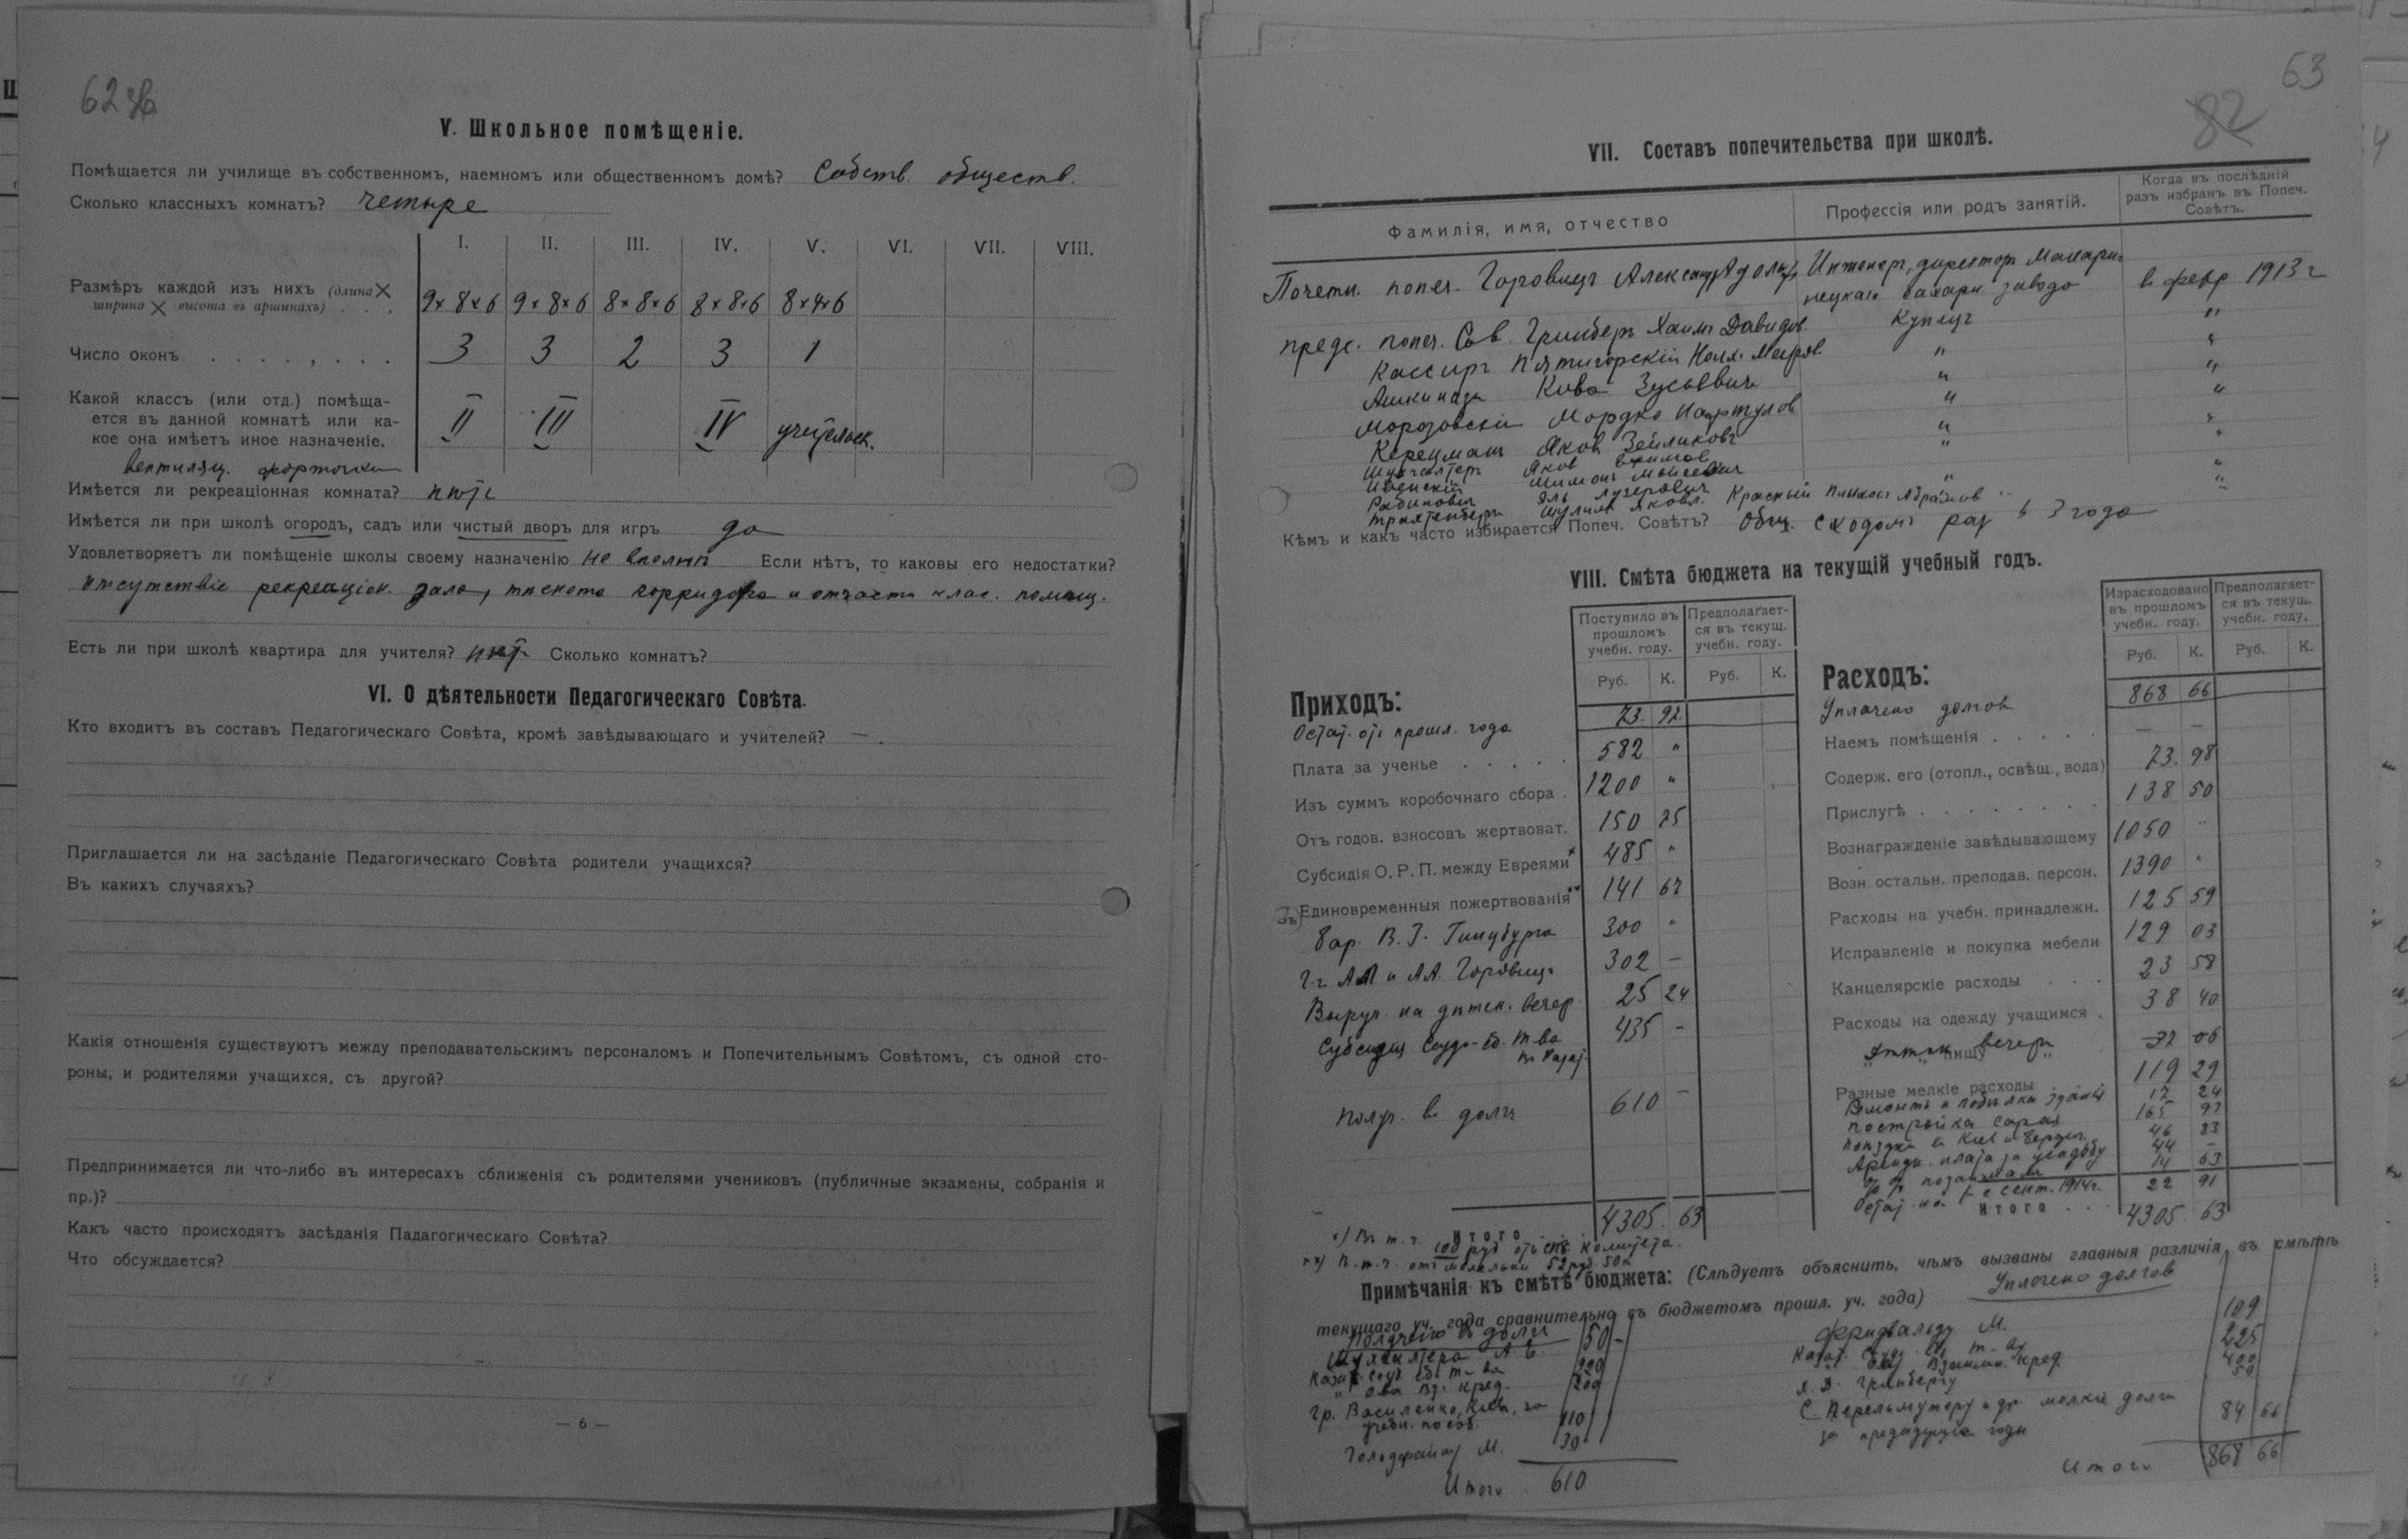 62 об
V. Школьное помѣщеніе.
Помѣщается ли училище въ собственномъ, наемномъ или общественномъ домѣ? Собств. обществ.
Сколько классныхъ комнатъ? четыре
I. II. III. IV. V. VI. VII. VIII.
Размѣръ каждой изъ нихъ (длина X
ширина X высота въ аршинахъ) . . . 9×8×6 9×8×6 8×8×6 8×8×6 8×4×6
Число оконъ . . . . , . . . 3 3 2 3 1
Какой классъ (или отд.) помѣща-
ется въ данной комнатѣ или ка-
кое она имѣетъ иное назначеніе. II III IV учительск.
вентиляц. форточки
Имѣется ли рекреаціонная комната? нѣтъ
Имѣется ли при школѣ огородъ, садъ или чистый дворъ для игръ да
Удовлетворяетъ ли помѣщеніе школы своему назначенію не вполнѣ Если нѣтъ, то каковы его недостатки?
отсутствіе рекреаціон. зала, тѣснота корридора и отчасти клас. помѣщ.
Есть ли при школѣ квартира для учителя? нѣтъ Сколько комнатъ?
VI. О дѣятельности Педагогическаго Совѣта.
Кто входитъ въ составъ Педагогическаго Совѣта, кромѣ завѣдывающаго и учителей? — .
Приглашается ли на засѣданіе Педагогическаго Совѣта родители учащихся?
Въ какихъ случаяхъ?
Какія отношенія существуютъ между преподавательскимъ персоналомъ и Попечительнымъ Совѣтомъ, съ одной сто-
роны, и родителями учащихся, съ другой?
Предпринимается ли что-либо въ интересахъ сближенія съ родителями учениковъ (публичные экзамены, собранія и
пр.)?
Какъ часто происходятъ засѣданія Падагогическаго Совѣта?
Что обсуждается?
— 6 —
63
82
VII. Составъ попечительства при школѣ.
Фамилія, имя, отчество
Профессія или родъ занятій.
Когда въ послѣдній
разъ избранъ въ Попеч.
Совѣтъ.
Почетн. попеч. Горовицъ Александръ Адольф. Инженеръ, директоръ
сахарн. завода в февр 1913 г
предс. попеч. Сов. Гринбергъ Хаимъ Давидов. Купецъ "
Кассиръ Пятигорскій " "
Ашкинази Кива Зусьевич " "
Морозовскій Мордко " "
Керецманъ Яков Зейликовъ " "
Яков
Шимонъ
Рабинович
Трахтенбергъ Шулимъ Яковл. Красный Абрамов
Кѣмъ и какъ часто избирается Попеч. Совѣтъ? Общ. сходомъ раз в 3 года
VIII. Смѣта бюджета на текущій учебный годъ.
Приходъ:
Поступило въ
прошломъ
учебн. году.
Предполагает-
ся въ текущ.
учебн. году.
Руб. К. Руб. К.
Остат. отъ прошл. года 73. 92
Плата за ученье . . . . . 582 "
Изъ суммъ коробочнаго сбора . 1200 "
Отъ годов. взносовъ жертвоват. 150 25
Субсидія О. Р. П. между Евреями × 485 "
Единовременныя пожертвованія ×× 141 67
бар. В. Г. Гинцбурга 300 "
Г-г. АА и АА Горовицъ 302 —
Выруч. на дѣтск. вечер 25 24
Субсидія Ссудо-сб. т-ва 435 —
Получ. в долг 610 —
Итого 4305. 63
Расходъ:
Израсходовано
въ прошломъ
учебн. году.
Предполагает-
ся въ текущ.
учебн. году.
Руб. К. Руб. К.
Уплачено долгов 868 66
Наемъ помѣщенія . . . . . — —
Содерж. его (отопл., освѣщ., вода) 73. 98
Прислугѣ . . . . . . . . 138 50
Вознагражденіе завѣдывающему 1050 "
Возн. остальн. преподав. персон. 1390 "
Расходы на учебн. принадлежн. 125 59
Исправленіе и покупка мебели 129 03
Канцелярскіе расходы . . . 23 58
Расходы на одежду учащимся . 38 40
" пищу " вечеръ 32 06
Разные мелкіе расходы 119 29
Ремонтъ и побѣлка зданія 17 24
постройка сарая 165 97
поѣздки в Кіев и Бердич. 46 83
Арендн. плата за усадьбу 44 —
% % 14 63
Остат. на 1-е сент. 1914 г. 22 91
Итого . . . 4305. 63
×) В т. ч. 100 руб отъ Комитета.
××) В. т. ч. отъ молельни 52 руб. 50 к
Примѣчанія къ смѣтѣ бюджета: (Слѣдуетъ объяснить, чѣмъ вызваны главныя различія въ смѣтѣ
текущаго уч. года сравнительно съ бюджетомъ прошл. уч. года)
Получено в долг
50 —
Казат. ссуд. сб. т-ва 220
" О-ва Вз. Кред. 200
Гр. Василенко, Кіев, за
учебн. пособ. 110
Гольдфайну М. 30
Итого 610
Уплачено долгов
Фридвальду М. 109
Казат. ссудо. сб. т-ву 225
" Взаимн. кред. 400
Х. Д. Гринбергу 50
С. Перельмутеру и др. мелкіе долги
за предыдущіе годы 84 66
Итого 868 66